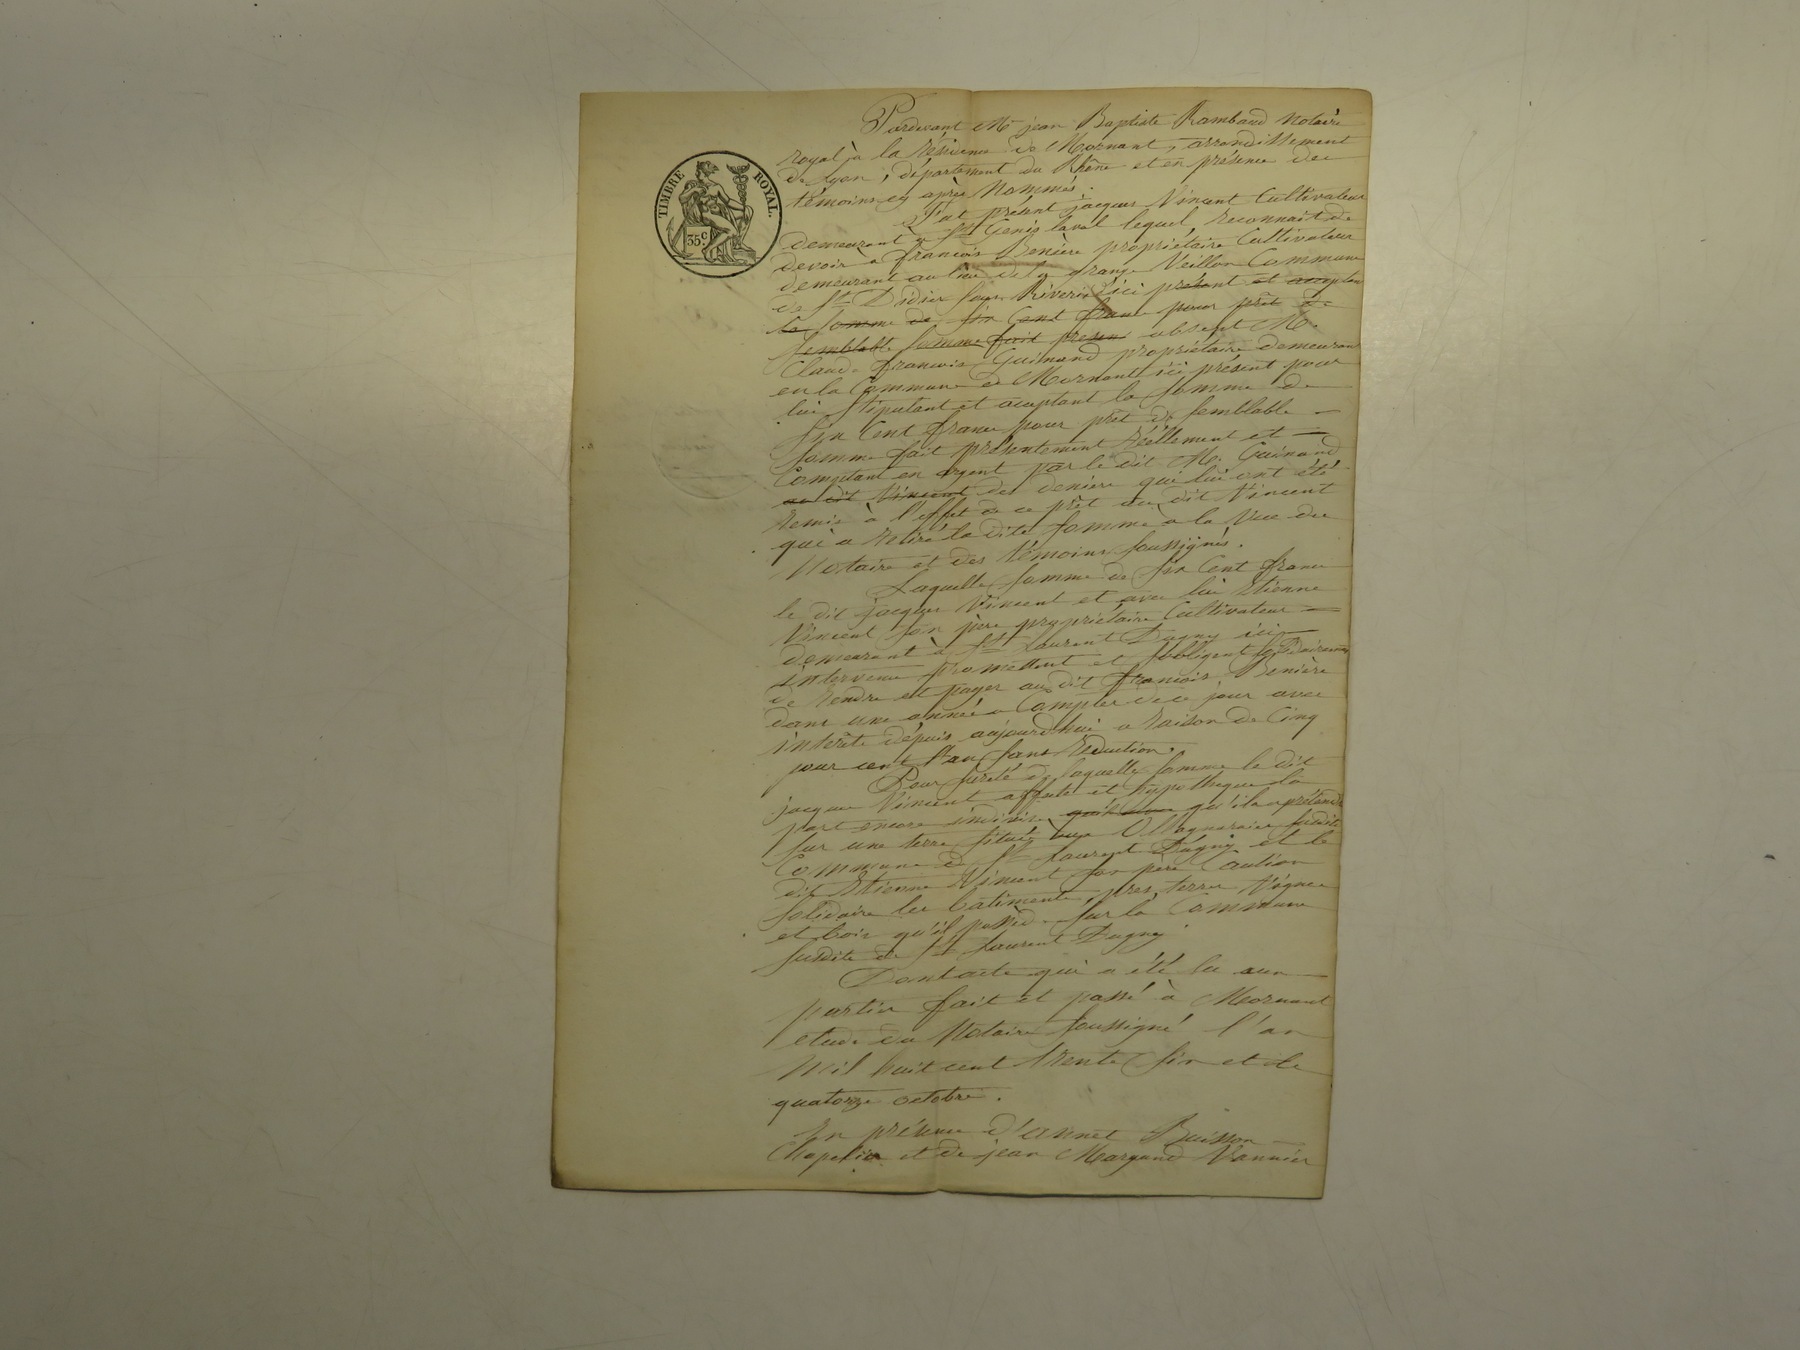 TIMBRE ROYAL.
35c
Pardevant Me jean Baptiste Rambaud Notaire
royal à la résidence de Mornant, arrondissement
de Lyon, département du Rhône et en présence des
témoins cy après Nommés.
Fut présent jacques Vincent Cultivateur
demeurant à St Genis laval lequel reconnait de
devoir à françois Benière propriétaire Cultivateur
demeurant au lieu de la grange Veillon Commune
de St Didier sous Riverie ici présent et acceptan
la somme de six Cent franc pour prêt de
semblable somme fait présen absent M.
Claude françois Guinand propriétaire demeuran
en la Commune de Mornant ici présent pour
lui stipulant et aceptant la somme de
six Cent franc pour prêt de semblable
somme fait présentement réellement et
Comptant en argent par le dit M. Guinand
au dit Vincent des deniers qui lui ont été
remis à l'effet de ce prêt au dit Vincent
qui a retiré la dite somme à la Vue du
Notaire et des témoins soussignés.
Laquelle somme de six Cent franc
le dit jacques Vincent et avec lui Etienne
Vincent son père propriétaire Cultivateur
demeurant à St Laurent Dagny ici
intervenu promettent et sobligent solidairement
de rendre et payer au dit françois Benière
dans une année a Compter de ce jour avec
intérêts depuis aujourdhui a raison de Cinq
pour cent l'an sans réduction.
Pour sureté de laquelle somme le dit
jacques Vincent affecte et hypothèque la
part encore indivise qu'il a prétendre
sur une terre située susdite
Commune de St Laurent Dagny et le
dit Etienne Vincent son père Caution
solidaire les batiments, pres, terres Vignes
et bois qu'il possède sur la Commune
susdite de St Laurent Dagny
Dont acte qui a été lu aux
parties fait et passé à Mornant
etude du Notaire soussigné l'an
Mil huit cent trente six et le
quatorze octobre.
En présence d'annet Buisson
Chapelier et de jean Margand Vannier